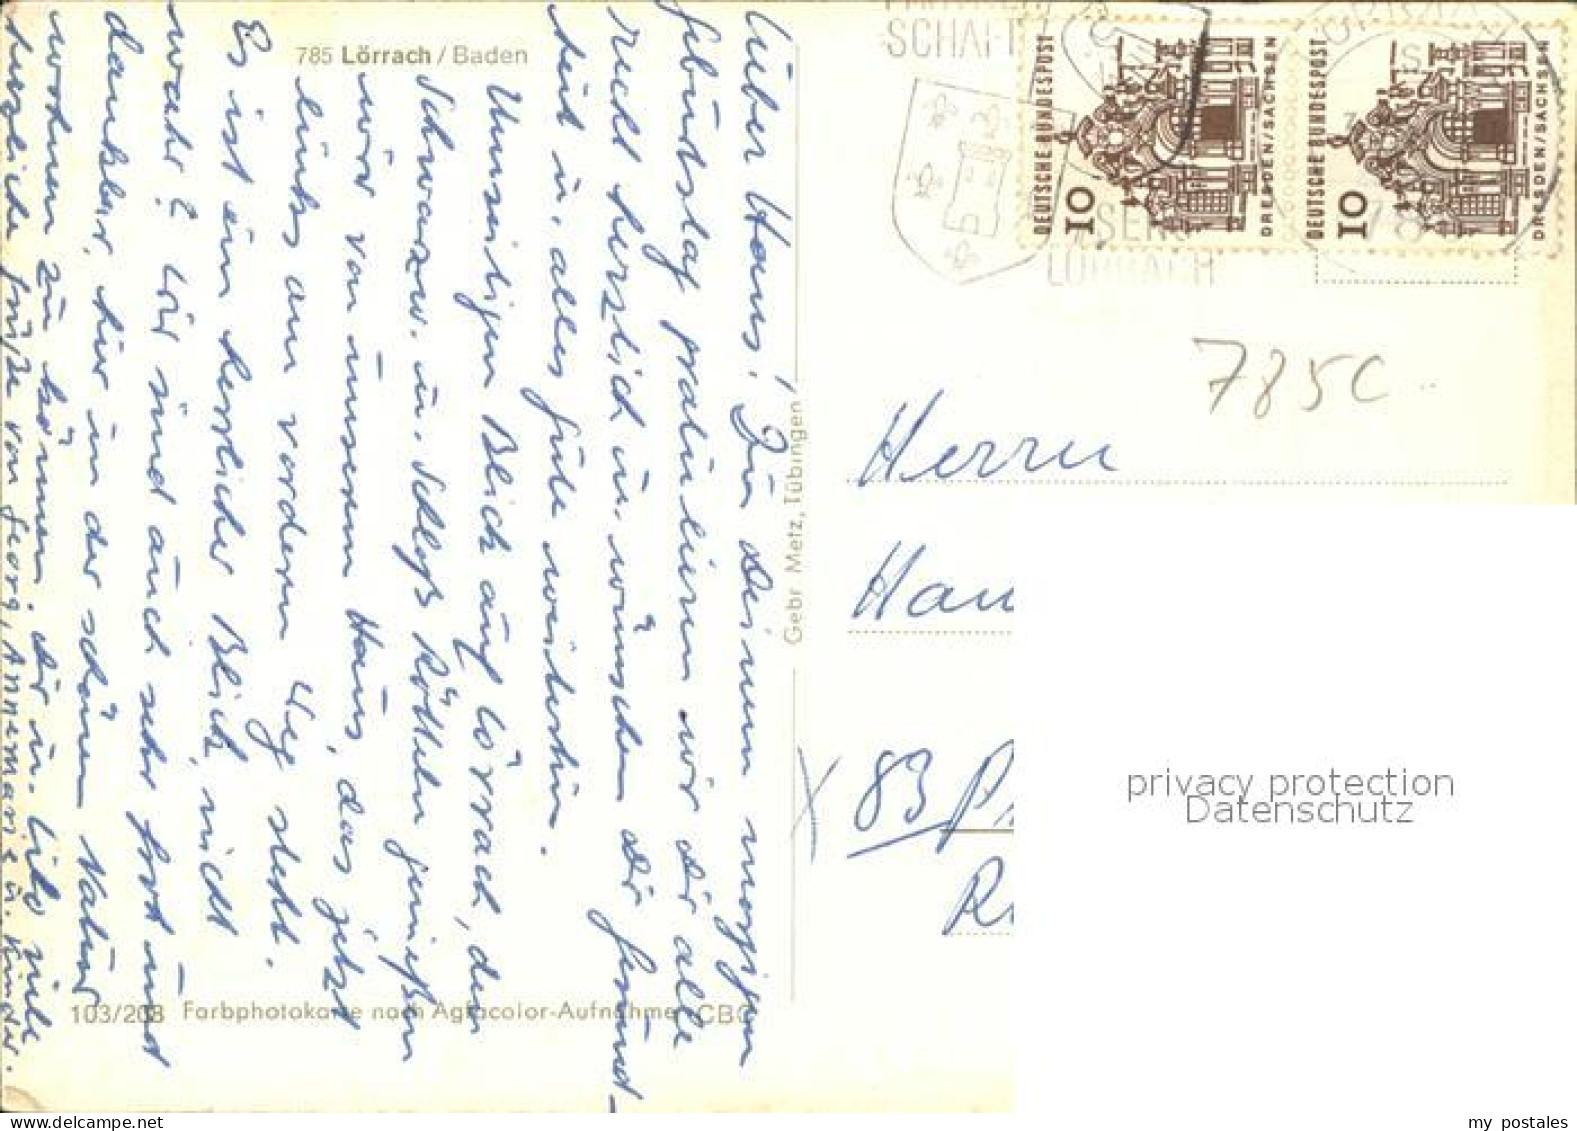 785 Lörrach / Baden
Lieber Hans! Zu Deinem morgigen
Geburtstag gratulieren wir Dir alle
recht herzlich u. wünschen Dir Gesund-
heit u. alles Gute weiterhin.
Umseitigen Blick auf Lörrach, den
Schwarzw. u. Schloß Rötteln genießen
wir von unserem Haus, das jetzt
links am vorderen Weg steht.
Es ist ein herrlicher Blick, nicht
wahr? Wir sind auch sehr froh und
dankbar, hier in der schönen Natur
wohnen zu können. Dir u. Lilo viele
herzliche Grüße von Georg, Annemarie u. Kinder.
103/208 Farbphotokarte nach Agfacolor-Aufnahme CBG
Gebr Metz, Tübingen
SCHAFT
LÖRRACH
DEUTSCHE BUNDESPOST
10
DRESDEN/SACHSEN
DEUTSCHE BUNDESPOST
10
DRESDEN/SACHSEN
785C
Herrn
Han
83
privacy protection
Datenschutz
my postales